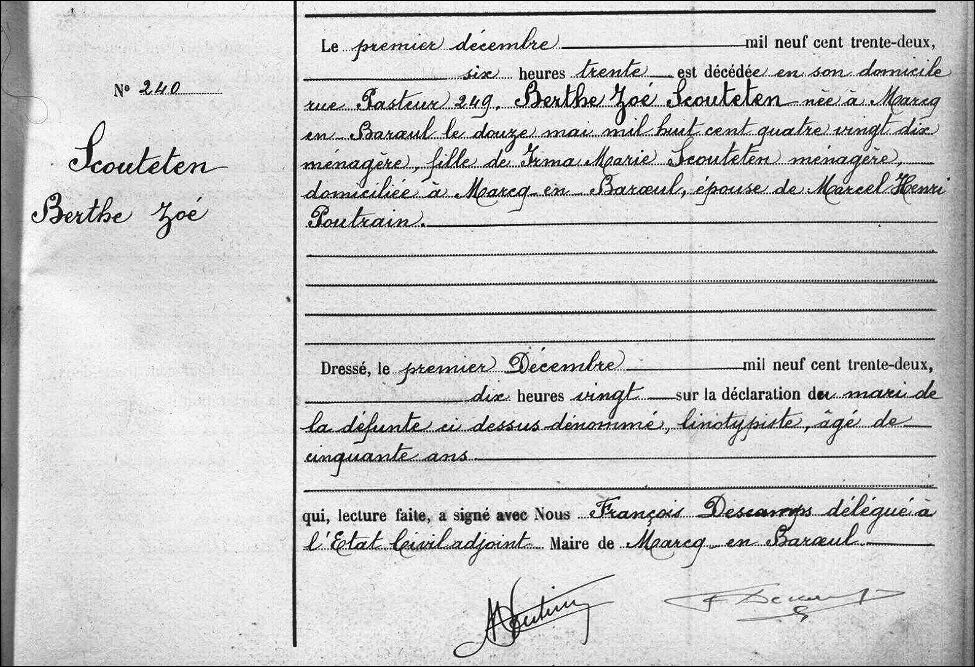 N° 240
Scouteten
Berthe Zoé
Le premier décembre mil neuf cent trente-deux,
six heures trente est décédée en son domicile
rue Pasteur 249. Berthe Zoé Scouteten née à Marcq
en Barœul le douze mai mil huit cent quatre vingt dix
ménagère, fille de Irma Marie Scouteten ménagère,
domiciliée à Marcq en Barœul, épouse de Marcel Henri
Poutrain.
Dressé, le premier Décembre mil neuf cent trente-deux,
dix heures vingt sur la déclaration du mari de
la défunte ci dessus dénommé, linotypiste, âgé de
cinquante ans
qui, lecture faite, a signé avec Nous François Descamps délégué à
l'Etat Civil adjoint Maire de Marcq en Barœul